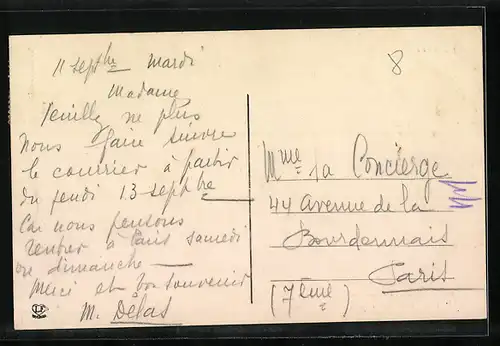 8
11 septbre mardi
Madame
Veuillez ne plus
nous faire suivre
le courrier à partir
du jeudi 13 septbre
Car nous pensons
rentrer à Paris samedi
ou dimanche —
Merci et bon souvenir
M. Délas
Mme la Concierge
44 avenue de la
Bourdonnais
Paris
(7ème)